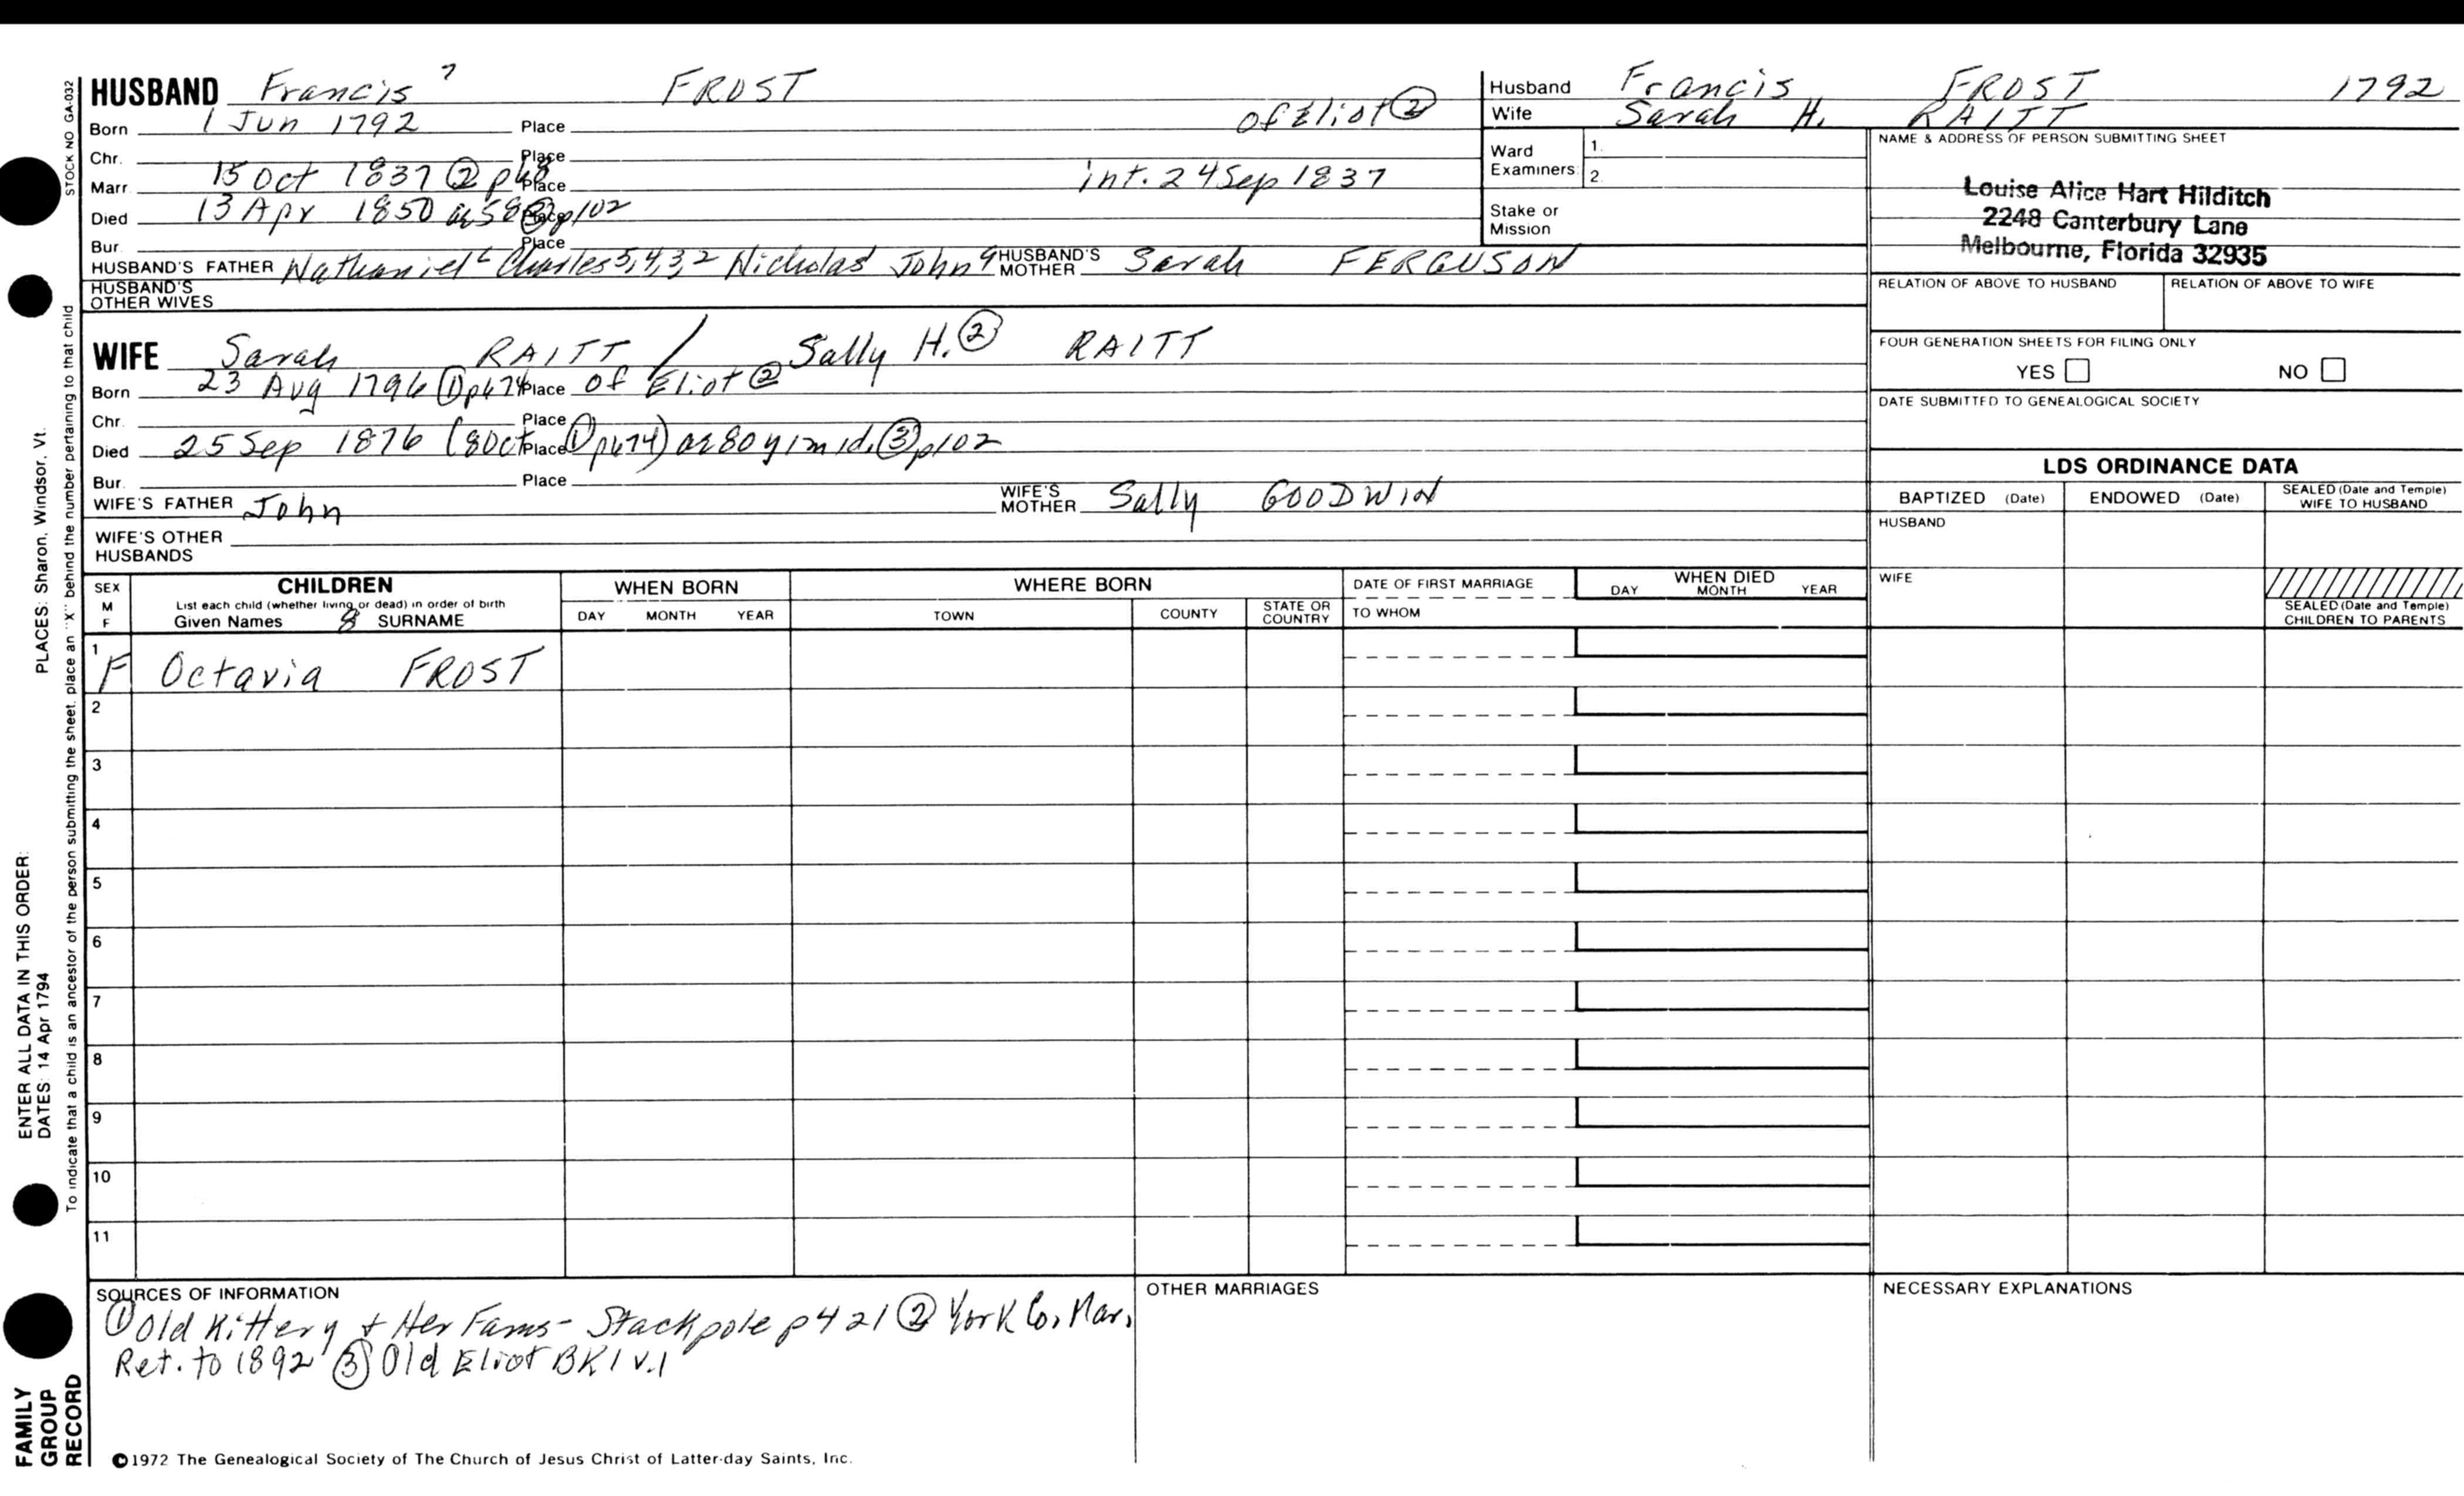 HUSBAND Francis 7 FROST
Born 1 Jun 1792 Place of Eliot ②
Chr. Place
Marr. 15 Oct 1837 ② p48 Place int. 24 Sep 1837
Died 13 Apr 1850 Place p102
Bur. Place
HUSBAND'S FATHER Nathaniel 6 Charles 5,4,3,2 Nicholas John HUSBAND'S MOTHER Sarah FERGUSON
HUSBAND'S OTHER WIVES
WIFE Sarah RAITT / Sally H. ② RAITT
Born 23 Aug 1796 ① p674 Place of Eliot ②
Chr. Place
Died 25 Sep 1876 (8 Oct Place ① p674) ae 80y 1m 1d. ③ p102
Bur. Place
WIFE'S FATHER John WIFE'S MOTHER Sally GOODWIN
WIFE'S OTHER HUSBANDS
Husband Francis FROST 1792
Wife Sarah H. RAITT
Ward Examiners: 1. 2.
Stake or Mission
NAME & ADDRESS OF PERSON SUBMITTING SHEET
Louise Alice Hart Hilditch
2248 Canterbury Lane
Melbourne, Florida 32935
RELATION OF ABOVE TO HUSBAND RELATION OF ABOVE TO WIFE
FOUR GENERATION SHEETS FOR FILING ONLY
YES NO
DATE SUBMITTED TO GENEALOGICAL SOCIETY
LDS ORDINANCE DATA
BAPTIZED (Date) ENDOWED (Date) SEALED (Date and Temple) WIFE TO HUSBAND
HUSBAND
WIFE
SEALED (Date and Temple) CHILDREN TO PARENTS
SEX M F
CHILDREN
List each child (whether living or dead) in order of birth
Given Names 8 SURNAME
WHEN BORN
DAY MONTH YEAR
WHERE BORN
TOWN COUNTY STATE OR COUNTRY
DATE OF FIRST MARRIAGE
TO WHOM
WHEN DIED
DAY MONTH YEAR
1 F Octavia FROST
2
3
4
5
6
7
8
9
10
11
SOURCES OF INFORMATION
① Old Kittery & Her Fams - Stackpole p421 ② York Co. Mar.
Ret. to 1892 ③ Old Eliot BK 1 v.1
OTHER MARRIAGES
NECESSARY EXPLANATIONS
©1972 The Genealogical Society of The Church of Jesus Christ of Latter-day Saints, Inc.
STOCK NO GA-032
To indicate that a child is an ancestor of the person submitting the sheet, place an "X" behind the number pertaining to that child
ENTER ALL DATA IN THIS ORDER:
DATES: 14 Apr 1794 PLACES: Sharon, Windsor, Vt.
FAMILY
GROUP
RECORD